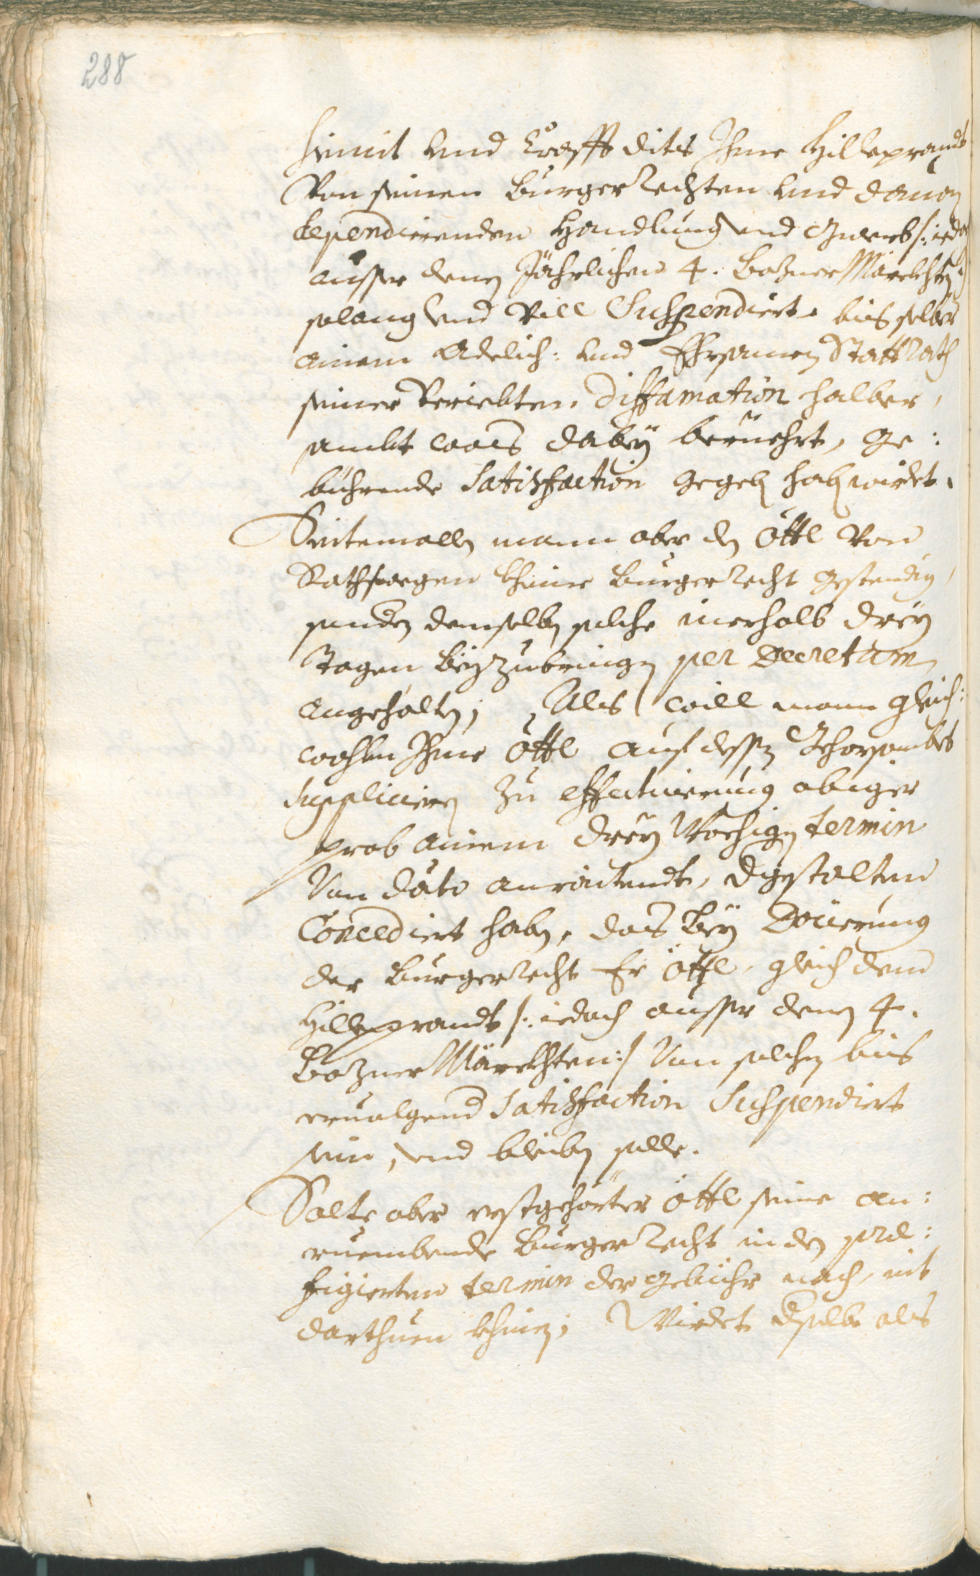 288
hiemit vnd Crafft dits Ihme Hilleprandt
Von seinen Burger Rechten vnd dauon
dependierenden Handlung vnd Gwerb /: iedoch
ausser denen Jährlichen 4. Bozner Märckhten :/
solang vnd vill Suspendiert, bis selber
ainem Adelich: vnd Ehrsamen Statt Rath
seiner veriebten Diffamation halber,
sambt waß dabey berüehrt, ge:
bührende Satisfaction gegeben haben wirdet.
Seitemallen mann aber den Öttl Von
Rathswegen kheine Burger Recht gestendig,
sonder demselben solche inerhalb dreÿ
Tagen beyzubringen per Decretum
angehalten; Als will mann gleich:
wohlen Ihme Öttl auf dessen Gehorsambes
Supplicieren zu effectuierung obiger
prob ainem dreÿ Wochigen termin
Von dato anraitendt, dergestalten
Concediert haben, das bey Docierung
der Burger Recht Er Öttl, gleich dem
Hilleprandt /: iedoch ausser denen 4.
Bozner Märckhten :/ Von solchen bis
eruolgend Satisfaction Suspendiert
sein, vnd bleiben solle.
Solte aber erstgehörter Öttl seine an:
ruembende Burger Recht in den præ:
figierten termin der gebühr nach, nit
darthuen khinen; Wirdet derselbe als